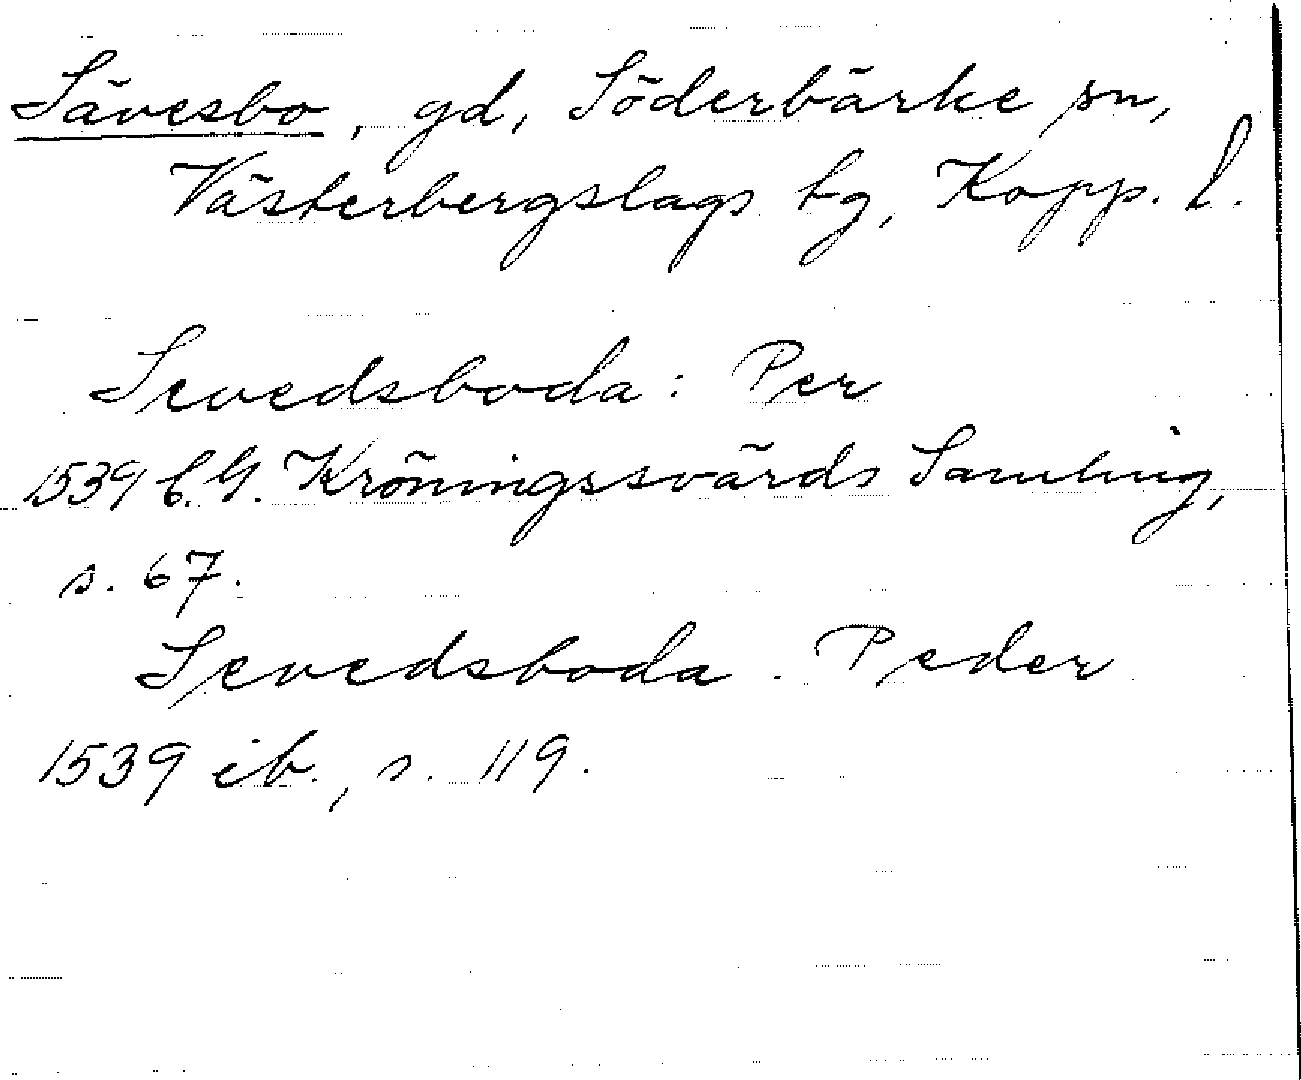 Sävesbo, gd, Söderbärke sn,
Västerbergslags tg, Kopp. l.
Sevedsboda: Per
1539 C. G. Kröningssvärds Samling,
s. 67.
Sevedsboda. Peder
1539 ib., s. 119.